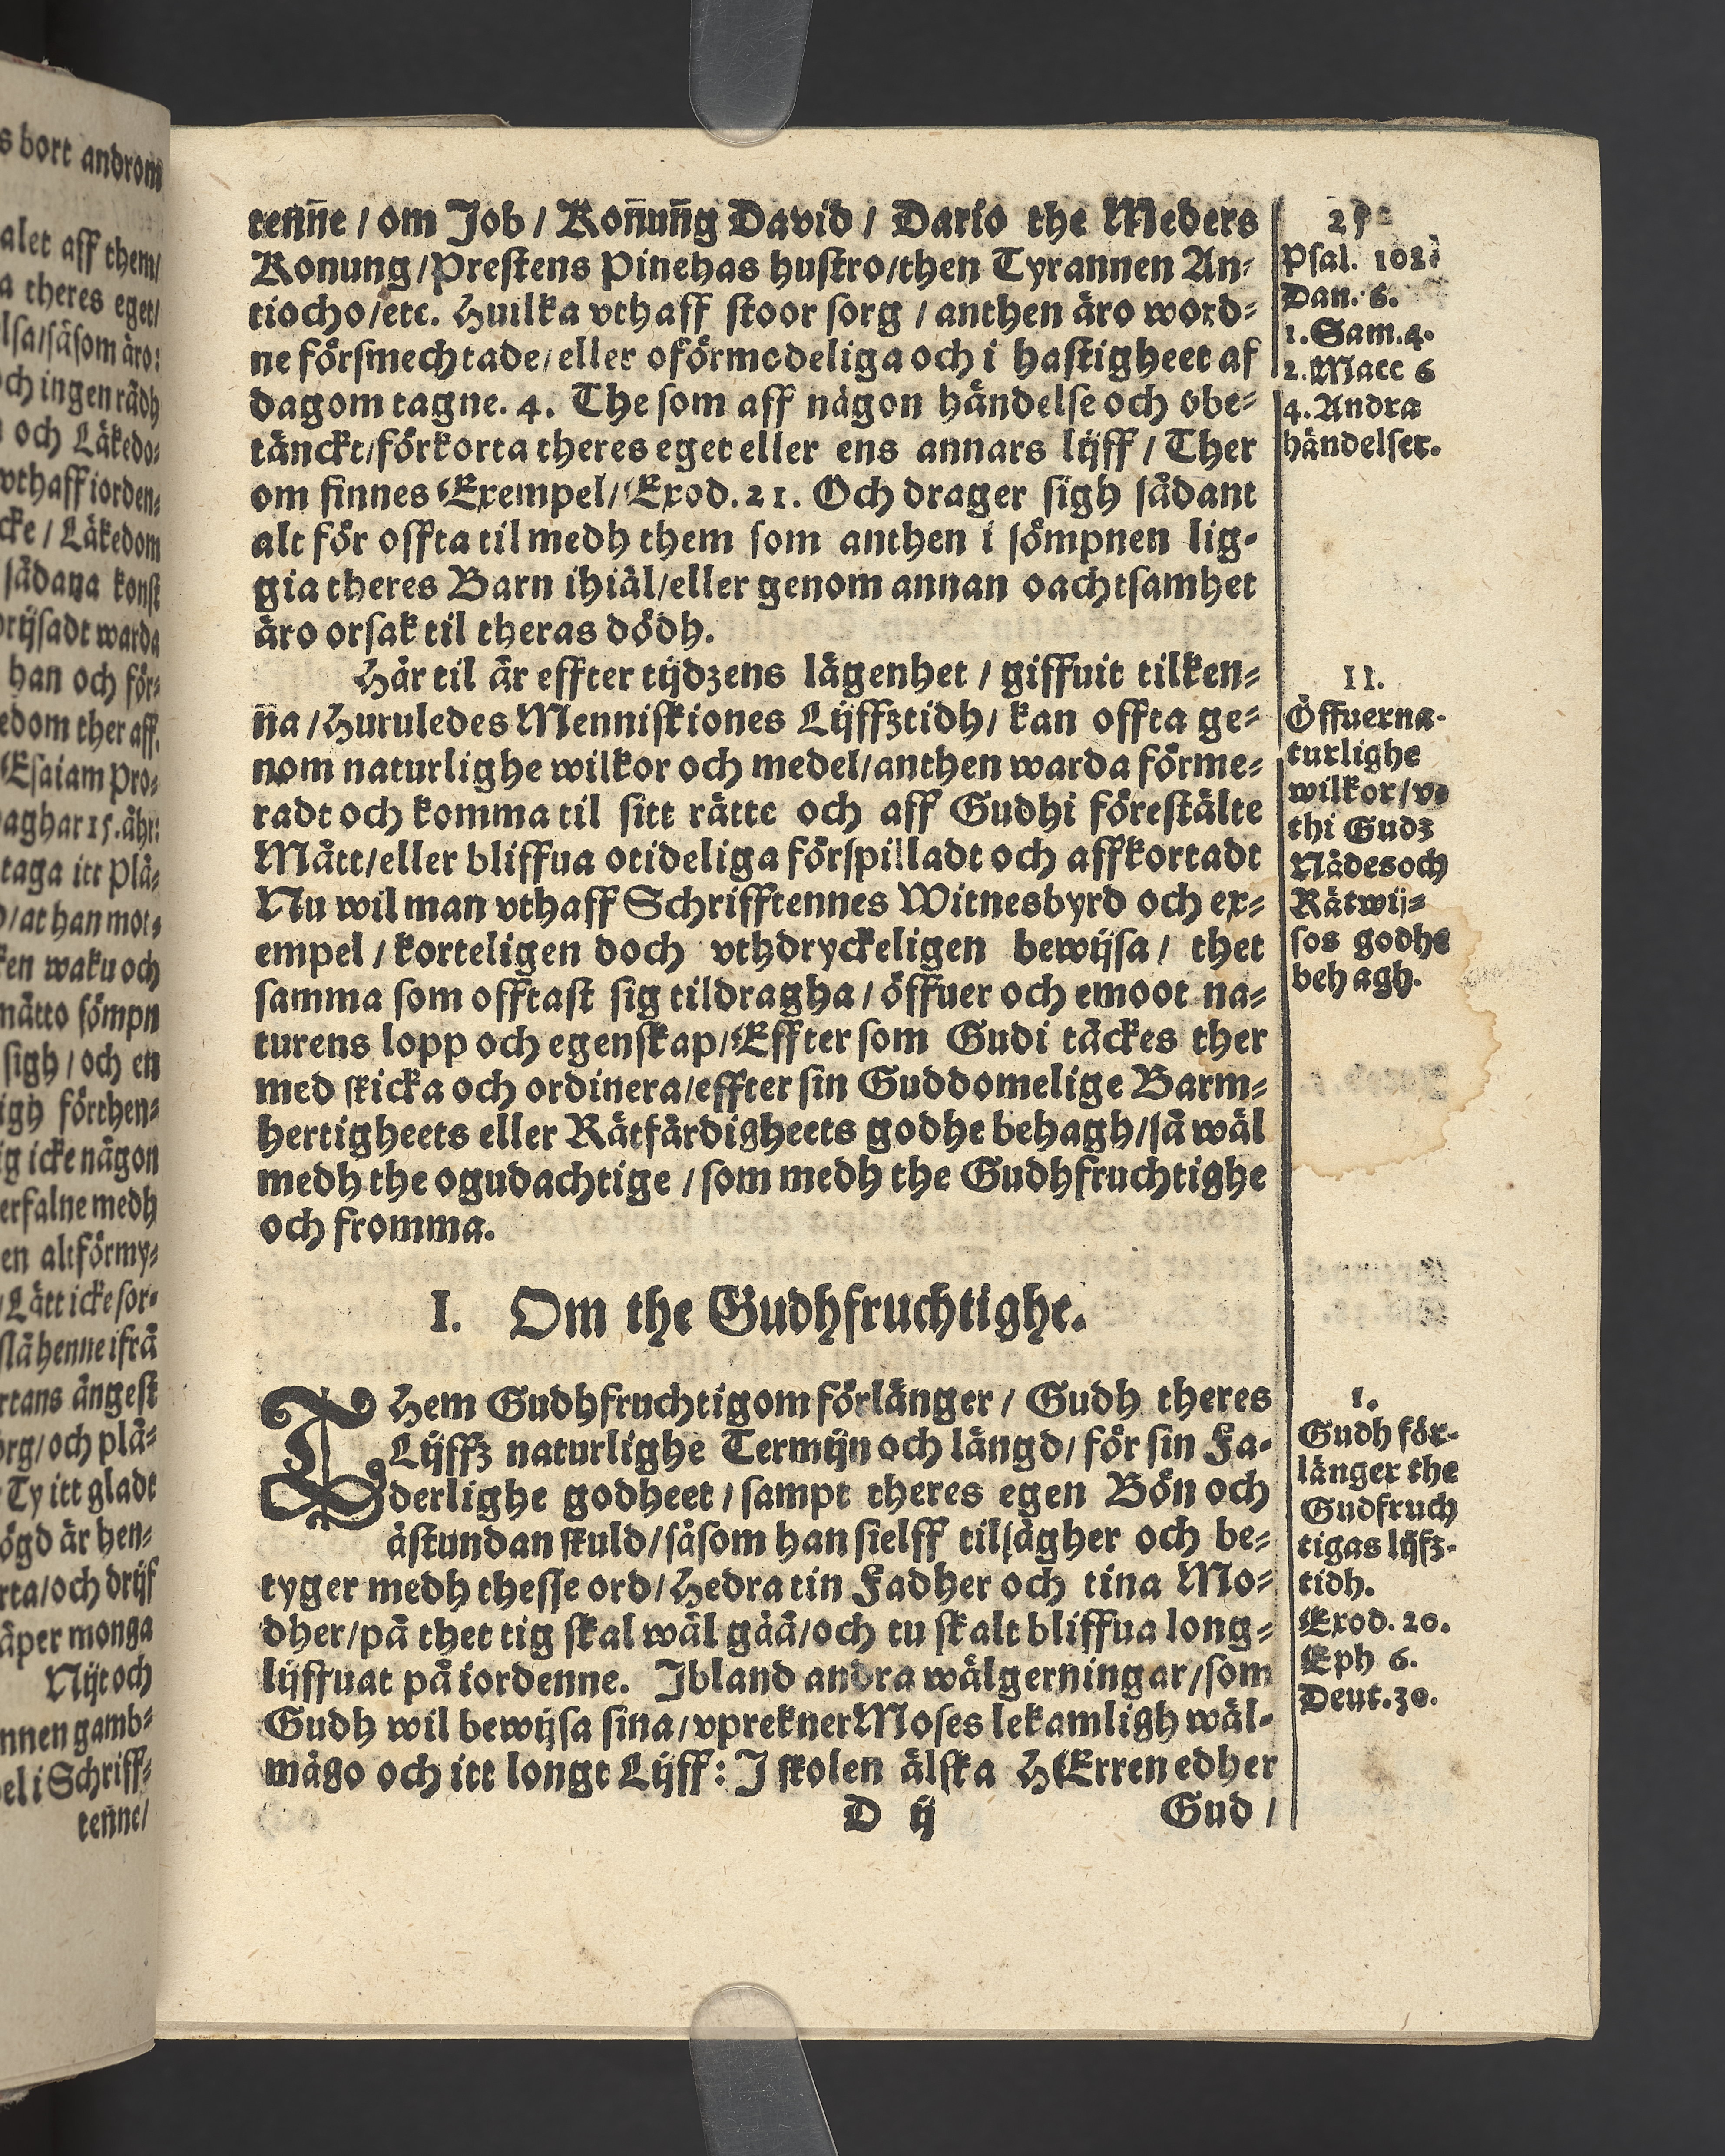 s bort androm
alet aff them/
a theres eget/
lsa/såsom äro:
och ingen rådh
och Läkedo⸗
vthaff iorden⸗
cke / Läkedom
sådana konst
orijsadt warda
han och för⸗
edom ther aff.
Esaiam Pro⸗
aghar 15. åhr:
taga itt Plå⸗
/at han mot⸗
ken waku och
måtto sömpn
sigh / och en
igh förthen⸗
ig icke någon
erfalne medh
en alt förmy⸗
/Lätt icke sor⸗
slå henne ifrå
rtans ängest
org/och plå⸗
Ty itt gladt
ögd är hen⸗
rta/och drijf
åper monga
Nijt och
nnen gamb⸗
el i Schriff⸗
ten̄ne/
ten̄ne / om Job / Kon̄un̄g David / Dario the Meders
Konung/Prestens Pinehas hustro/then Tyrannen An⸗
tiocho/etc. Huilka vthaff stoor sorg / anthen äro word⸗
ne försmechtade/eller oförmodeliga och i hastigheet af
dagom tagne. 4. The som aff någon händelse och obe⸗
tänckt/förkorta theres eget eller ens annars lijff / Ther
om finnes Exempel/Exod. 21. Och drager sigh sådant
alt för offta til medh them som anthen i sömpnen lig⸗
gia theres Barn ihiäl/eller genom annan oachtsamhet
äro orsak til theras dödh.
Här til är effter tijdzens lägenhet / giffuit tilken⸗
n̄a /Huruledes Menniskiones Lijffztidh/ kan offta ge⸗
nom naturlighe wilkor och medel/anthen warda förme⸗
radt och komma til sitt rätte och aff Gudhi förestälte
Mått/eller bliffua otideliga förspilladt och affkortadt
Nu wil man vthaff Schrifftennes Witnesbyrd och ex⸗
empel / korteligen doch vthdryckeligen bewijsa / thet
samma som offtast sig tildragha / öffuer och emoot na⸗
turens lopp och egenskap/Effter som Gudi täckes ther
med skicka och ordinera/effter sin Guddomelige Barm⸗
hertigheets eller Rätfärdigheets godhe behagh/så wäl
medh the ogudachtige / som medh the Gudhfruchtighe
och fromma.
I. Om the Gudhfruchtighe.
THem Gudhfruchtigom förlänger / Gudh theres
Lijffz naturlighe Termijn och längd/ för sin Fa⸗
derlighe godheet / sampt theres egen Bön och
åstundan skuld/såsom han sielff tilsägher och be⸗
tyger medh thesse ord/Hedra tin Fadher och tina Mo⸗
dher/på thet tig skal wäl gåå/och tu skalt bliffua long⸗
lijffuat på iordenne. Ibland andra wälgerningar/som
Gudh wil bewijsa sina/vprekner Moses lekamligh wäl⸗
mågo och itt longt Lijff: I skolen älska HErren edher
D ij Gud /
Psal. 102.
Dan. 6.
1. Sam. 4.
2. Macc 6
4. Andra
händelser.
II.
Öffuerna⸗
turlighe
wilkor/vt
thi Gudz
Nådes och
Rätwij⸗
sos godhe
behagh.
1.
Gudh för⸗
länger the
Gudfruch
tigas lijfz⸗
tidh.
Exod. 20.
Eph 6.
Deut. 30.